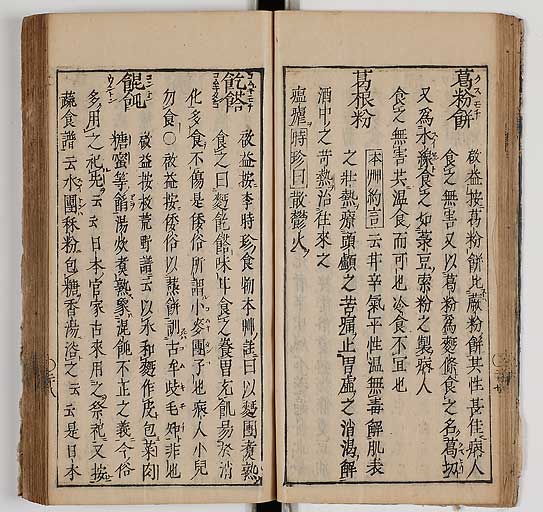 葛粉餅
クスモチ
啓益按葛粉餅比蕨粉餅其性甚佳病人
食之無害又以葛粉為麪條食之名葛切
又為水線食之如菉豆索粉之製病人
食之無害共温食而可也冷食不宜也
葛根粉
本艸約言云甘辛氣平性温無毒解肌表
之壯熱療頭顱之苦痛止胃虚之消渇解
酒中之苛熱治往來之
瘟瘧時珍曰散鬱火
飥𩝣
啓益按李時珍食物本艸註曰以麪團煮熟
食之曰麪飥𩝣味甘食之養胃充飢易於消
化多食不傷是倭俗所謂小麥團子也病人小兒
勿食〇啓益按倭俗以蒸餅訓古牟岐毛知非也
餛飩
ウントン
啓益按救荒野譜云以水和麪作皮包菜肉
糖蜜等餡湯炊煮熟象混飩不正之義今俗
多用之祀先云云日本官家古來用之祭祀又按
蔬食譜云水團秫粉包糖香湯浴之云云是日本